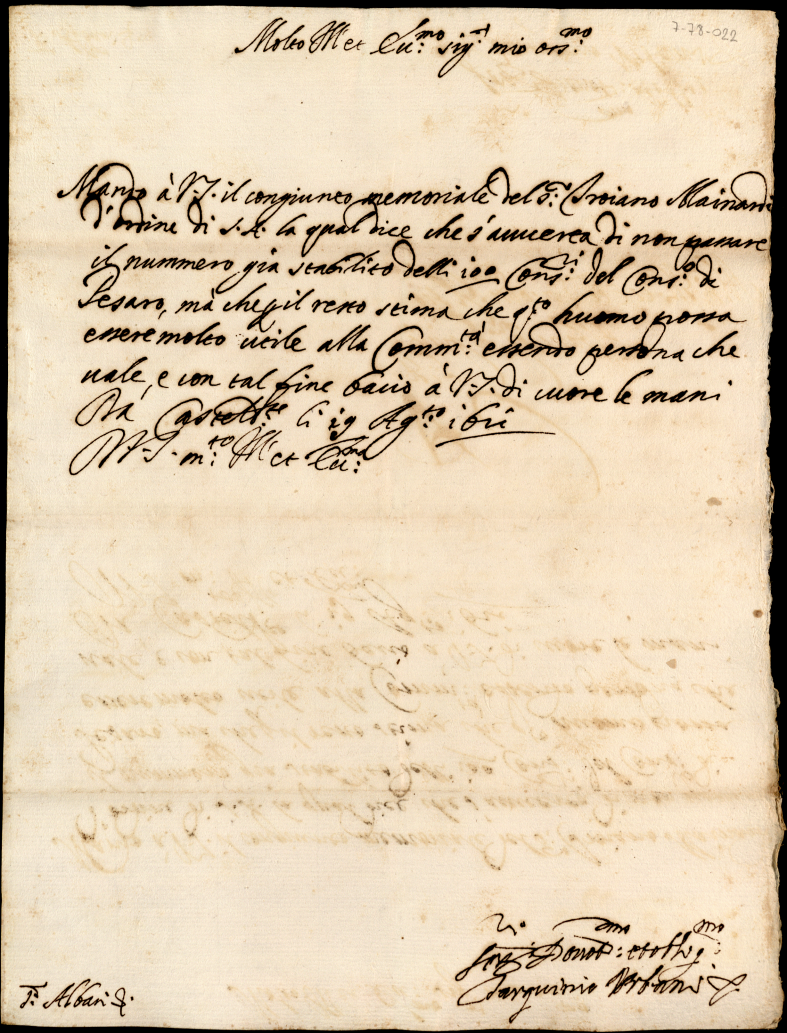 7-78-022
Molto Ill et Ecc.mo sig.r mio oss.mo
Mando à V.S. il congiunto memoriale del s.r Troiano Mainardi
d'ordine di S.A. la qual dice che s'auuerta di non passare
il nummero già stabilito delli 100 Cons.ri del Cons.o di
Pesaro, mà che p il resto stima che q.to huomo possa
essere molto utile alla Comm.tà essendo persona che
uale, e con tal fine bacio à V.S. di cuore le mani
Da Casteld.te li 19 Ag.to 1611
D V.S. m.to Ill et Ecc.ma
Ser.re Deuot.mo et obblig.mo
Tarquinio Urbani
S.r Albani